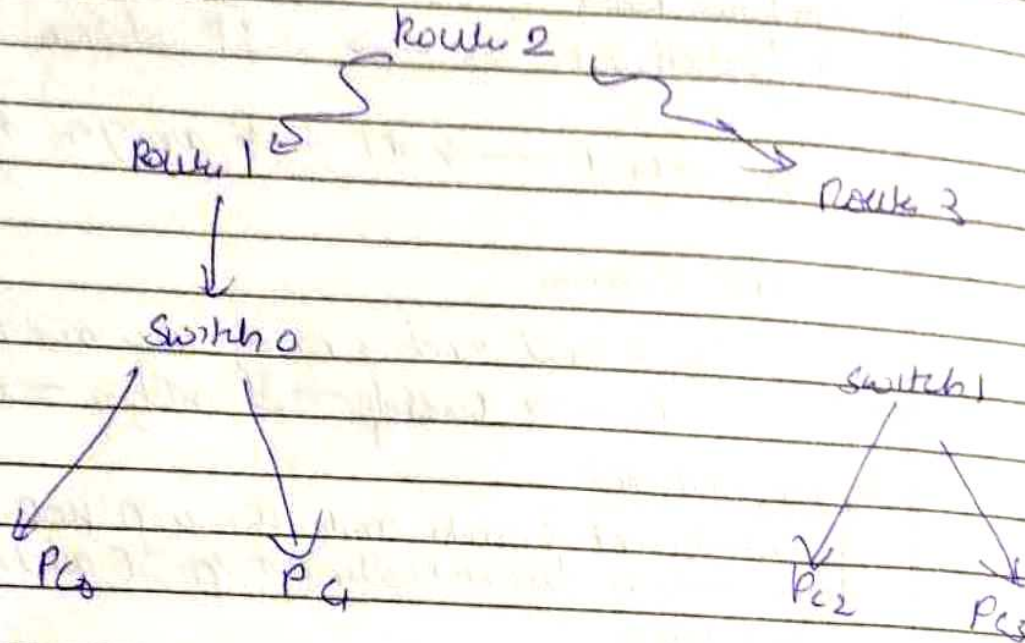 Route 2
Route 1
Route 3
Switch 0
Switch 1
PC0
PC1
PC2
PC3